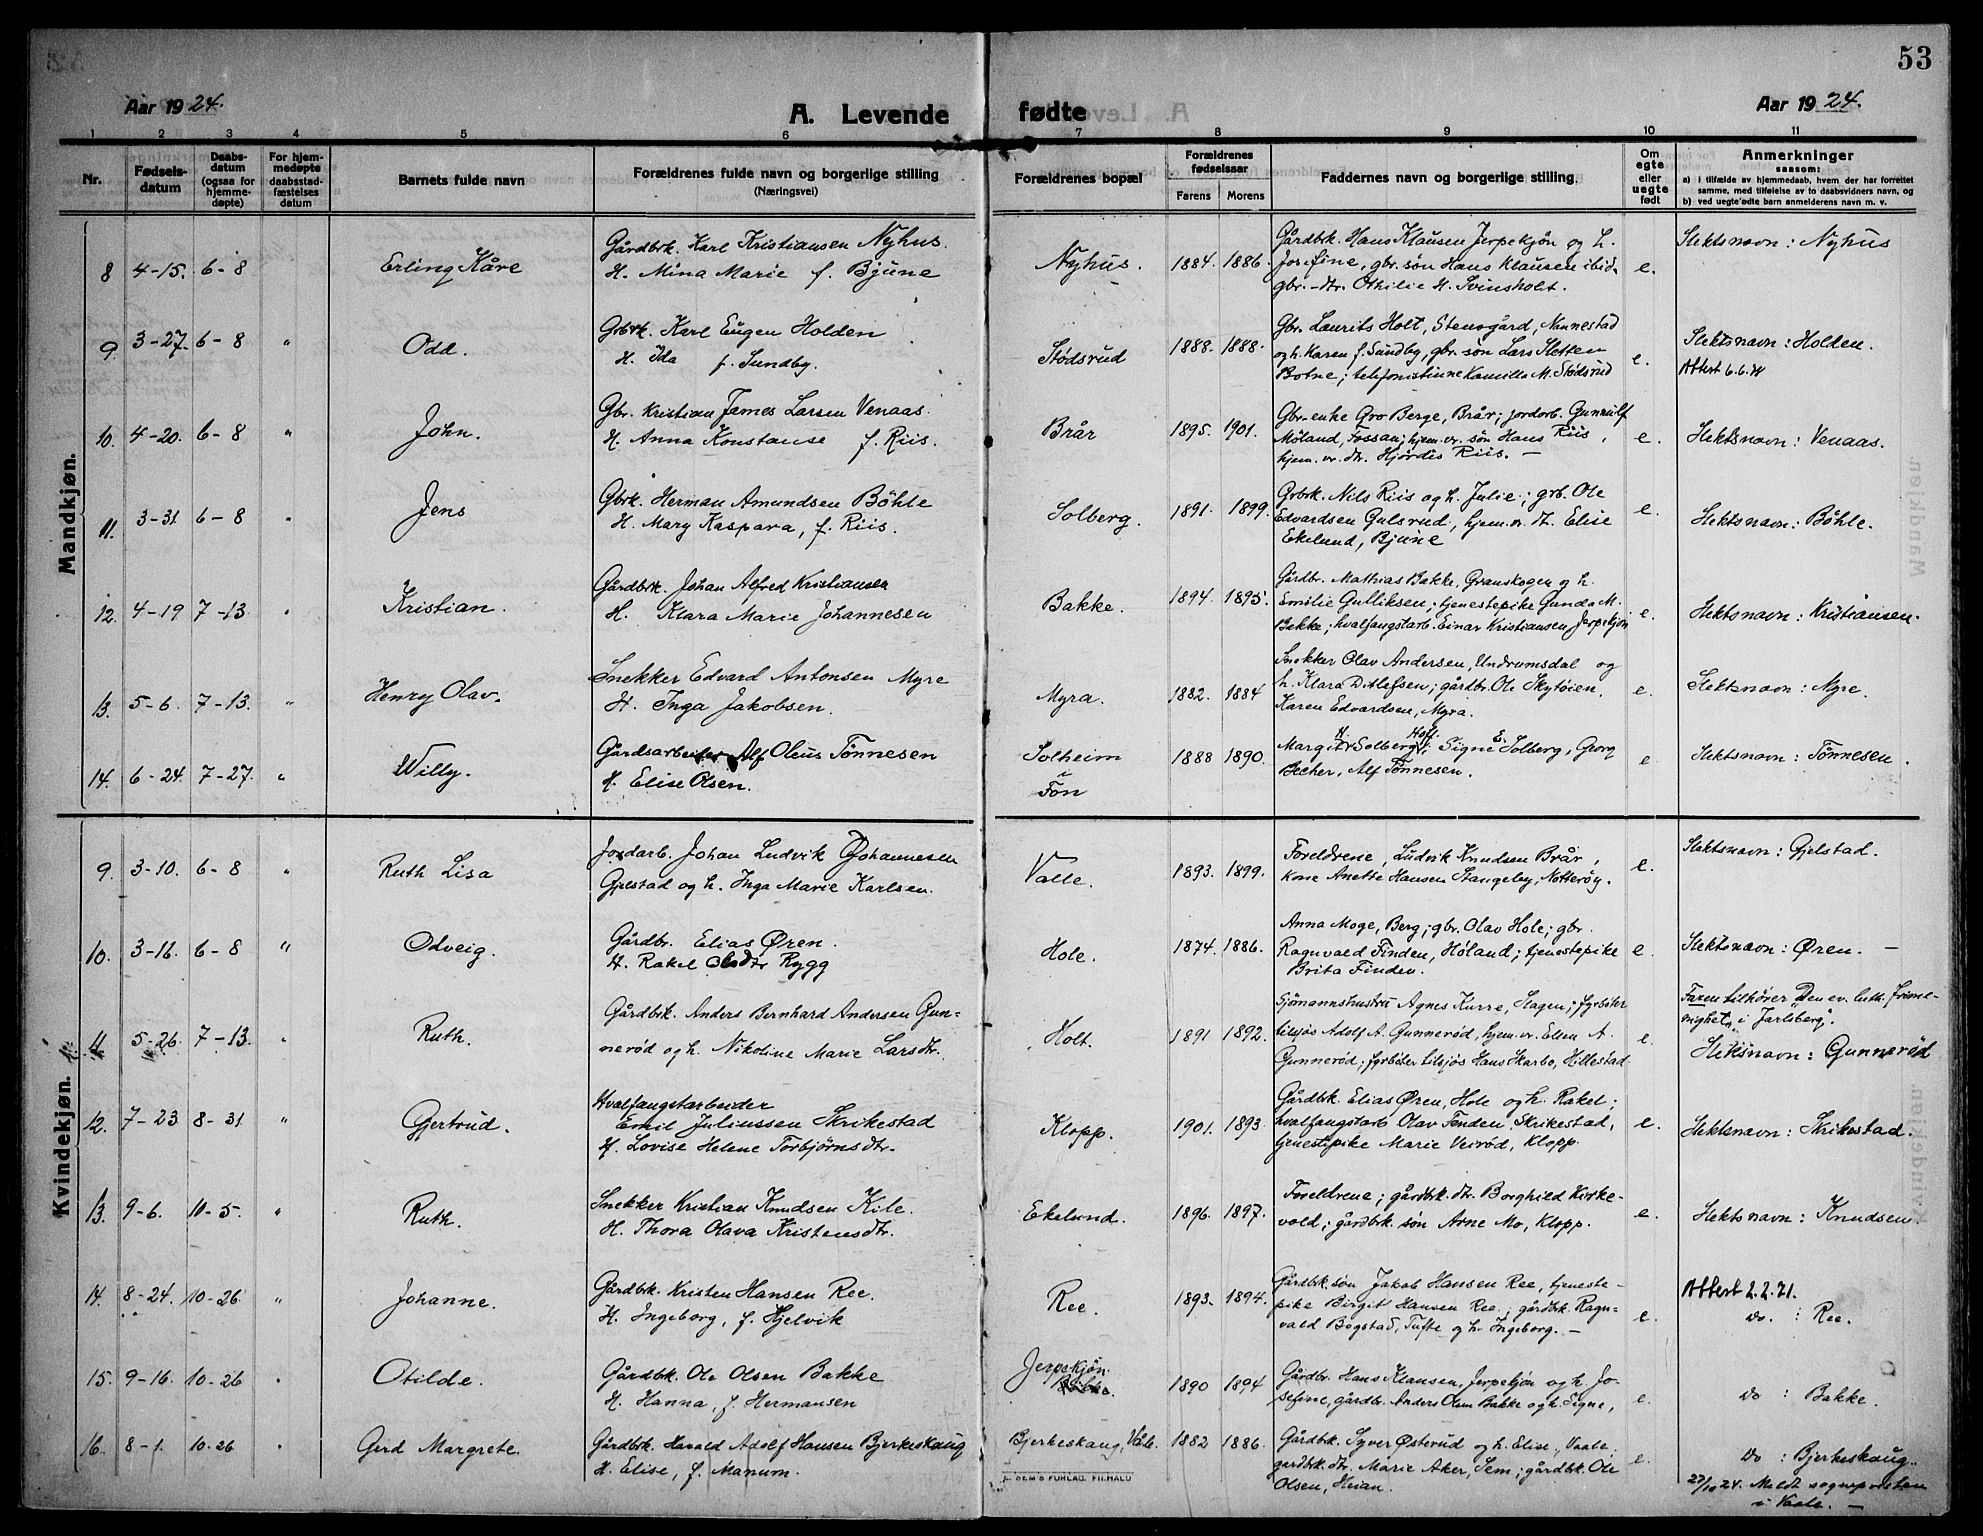 53
Aar 1924.
A. Levende fødte
Aar 1924.
1 2 3 4 5 6 7 8 9 10 11
Nr.
Fødsels-
datum
Daabs-
datum
(ogsaa for
hjemme-
døpte)
For hjem-
medøpte
daabsstad-
fæstelses
datum
Barnets fulde navn
Forældrenes fulde navn og borgerlige stilling
(Næringsvei)
Forældrenes bopæl
Forældrenes
fødselsaar
Farens Morens
Faddernes navn og borgerlige stilling.
Om
egte
eller
uegte
født
Anmerkninger
saasom:
a) i tilfælde av hjemmedaab, hvem der har forrettet
samme, med tilføielse av to daabsvidners navn, og
b) ved uegte fødte barn anmelderens navn m. v.
Mandkjøn.
8 4-15. 6-8 Erling Kåre
Gårdbrk. Karl Kristiansen Nyhus.
H. Mina Marie f. Bjune
Nyhus. 1884. 1886.
Gårdbrk. Hans Klausen Jerpekjøn og h.
Josefine, gbr. søn Hans Klausen ibid.
gbr.-dtr. Othilie H. Svinsholt.
e.
Slektsnavn: Nyhus
9. 3-27. 6-8 " Odd.
Grbrk. Karl Eugen Holden
H. Ida f. Sundby.
Stødsrud 1888. 1888.
Gbr. Laurits Holt, Stensgård, Nannestad
og h. Karen f. Sundby, gbr. søn Lars Sletten
Botne; telefonistinne Kamilla M. Stødsrud
e.
Slektsnavn: Holden.
Attest 6.6.
10. 4-20. 6-8 " John.
Gbr. Kristian James Larsen Venaas.
H. Anna Konstanse f. Riis.
Brår 1895. 1901.
Gbr-enke Gro Berge, Brår; jordarb. Gunnulf
Møland, Fossan; hjem.vr. søn Hans Riis,
hjem. vr. dtr. Hjørdis Riis. —
e.
Slektsnavn: Venaas.
11. 3-31. 6-8 " Jens
Gbrk. Herman Amundsen Bøhle
H. Mary Kaspara, f. Riis.
Solberg. 1891. 1899.
Grbrk. Nils Riis og h. Julie; grb. Ole
Edvardsen Gulsrud, hjem.vr. dt. Elise
Ekelund, Bjune
e.
Slektsnavn: Bøhle.
12. 4-19 7-13 " Kristian.
Gårdbrk. Johan Alfred Kristiansen
H. Klara Marie Johannesen
Bakke. 1894. 1895.
Gårdbr. Mathias Bakke, Granskogen og h.
Emilie Gulliksen; tjenestepike Gunda M.
Bakke; hvalfangstarb. Einar Kristiansen Jerpekjøn
e.
Slektsnavn: Kristiansen.
13. 5-6. 7-13. " Henry Olav.
Snekker Edvard Antonsen Myre
H. Inga Jakobsen.
Myra. 1882. 1884
Snekker Olav Andersen, Undrumsdal og
h. Klara Ditlefsen; gårdbr. Ole Skytøien.
Karen Edvardsen, Myra.
e.
Slektsnavn: Myre.
14. 6-24. 7-27. " Willy.
Gårdsarbeiter Alf Oleus Tønnesen
H. Elise Olsen.
Solheim
Føn
1888 1890.
Margit H. Solberg, Hoff; Signe E. Solberg, Georg
Becher, Alf Tønnesen.
e
Slektsnavn: Tønnesen.
Kvindekjøn.
9. 3-10. 6-8 " Ruth Lisa
Jordarb. Johan Ludvik Johannesen
Gjelstad og h. Inga Marie Karlsen.
Valle. 1893. 1899.
Foreldrene, Ludvik Knudsen Brår,
kone Anette Hansen Stangeby, Nøtterøy.
e.
Slektsnavn: Gjelstad.
10. 3-16. 6-8 " Odveig.
Gårdbr. Elias Øren.
H. Rakel Olsdtr Rygg
Hole. 1874. 1886.
Anna Moge, Berg; gbr. Olav Hole; gbr.
Ragnvald Finden, Høland; tjenestepike
Brita Finden.
e.
Slektsnavn: Øren. —
11. 5-26. 7-13. " Ruth.
Gårdbrk. Anders Bernhard Andersen Gun-
nerød og h. Nikoline Marie Larsdtr.
Holt. 1891 1892.
Sjømannshustru Agnes Kurre, Slagen; fyrbøter
tilsjøs Adolf A. Gunnerød, hjem.vr. Elen A.
Gunnerød; fyrbøter tilsjøs Hans Skarbo, Hillestad
e.
Faren tilhører "Den ev. luth. frime-
nighet i Jarlsberg".
Slektsnavn: Gunnerød
12. 7-23 8-31 " Gjertrud.
Hvalfangstarbeider
Emil Juliussen Skrikestad
H. Lovise Helene Torbjørnsdtr.
Klopp. 1901. 1893
Gårdbk. Elias Øren, Hole og h. Rakel;
hvalfangstarb. Olav Finden, Skrikestad,
tjenestepike Marie Veirød, Klopp.
e.
Slektsnavn: Skrikestad.
13. 9-6. 10-5. " Ruth.
Snekker Kristian Knudsen Kile.
H. Thora Olava Kristensdtr.
Ekelund. 1896. 1897.
Foreldrene; gårdbrk. dtr. Borghild Kirke-
vold; gårdbrk. søn Arne Mo, Klopp.
e.
Slektsnavn: Knudsen.
14. 8-24. 10-26. " Johanne.
Gårdbrk. Kristen Hansen Ree.
H. Ingeborg, f. Hjelvik
Ree. 1893. 1894.
Gårdbk. søn Jakob Hansen Ree, tjeneste-
pike Birgit Hansen Ree; gårdbk. Ragn-
vald Bogstad, Tufte og h. Ingeborg. —
e.
Attest 2.2.71.
do. : Ree.
15. 9-16. 10-26 " Otilde.
Gårdbk. Ole Olsen Bakke
H. Hanna, f. Hermansen
Jerpekjøn.
1890 1894
Gårdbr. Hans Klausen, Jerpekjøn og h. Jo-
sefine, gårdbr. Anders Olsen Bakke og h. Signe,
e.
do : Bakke.
16. 8-1. 10-26 " Gerd Margrete.
Gårdbk. Harald Adolf Hansen Bjerkeskaug
H. Elise, f. Manum.
Bjerkeskaug, Våle. 1882 1886.
Gårdbk. Syver Østerud og h. Elise, Vaale.
gårdbk. dtr. Marie Aker, Sem; gårdbk. Ole
Olsen, Heian.
e.
do : Bjerkeskaug.
27/10 24. Meldt sogneprosten
i Vaale. —
SEM'S FORLAG, FR.HALD